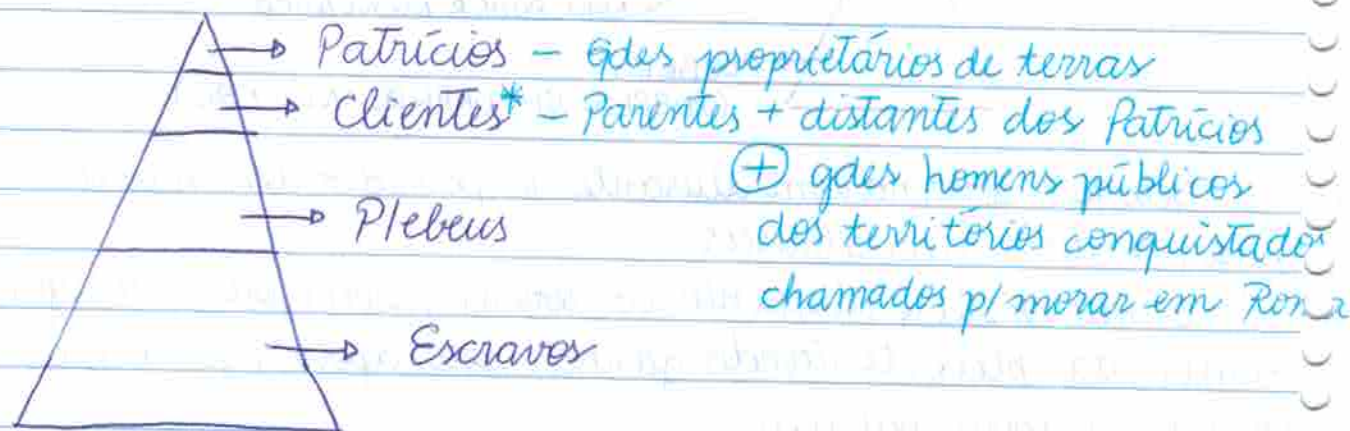 Patrícios – gdes proprietários de terras
Clientes* – Parentes + distantes dos Patrícios
+ gdes homens públicos
Plebeus dos territórios conquistados
chamados p/ morar em Roma
Escravos